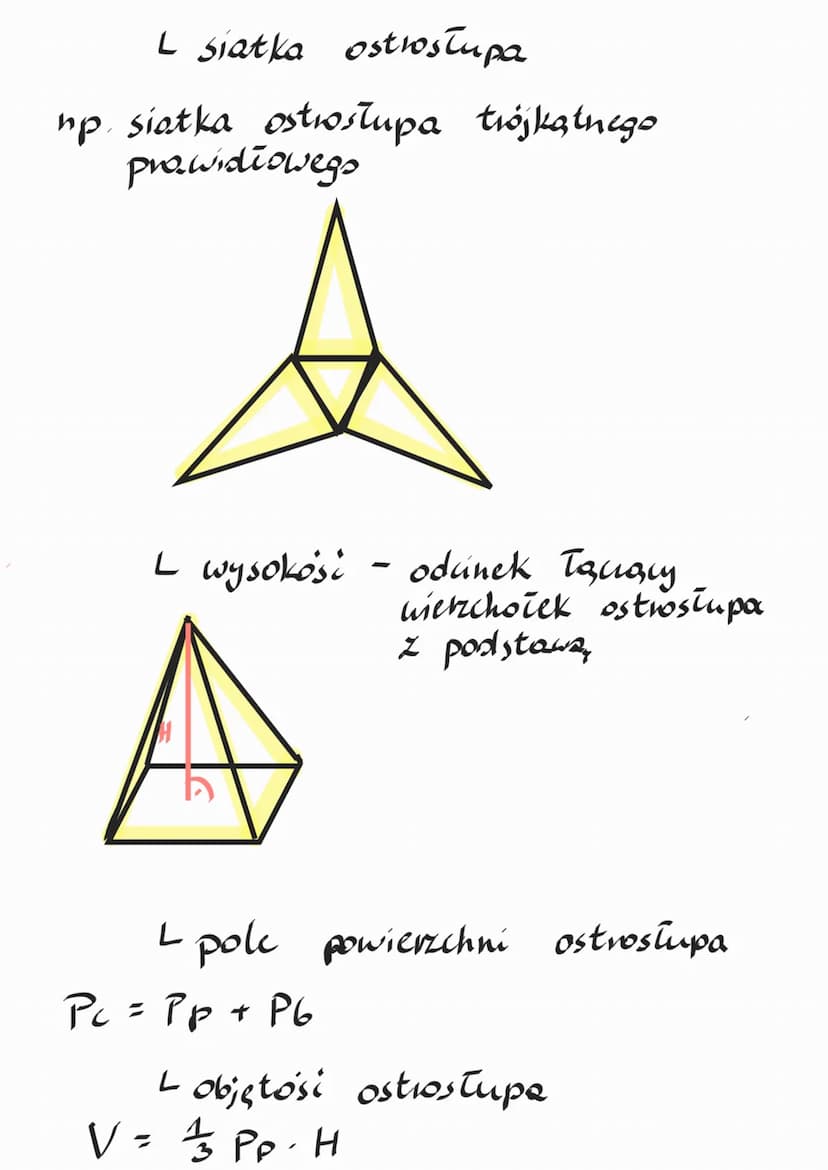 └ siatka ostrosłupa
np. siatka ostrosłupa trójkątnego
prawidłowego
└ wysokość - odcinek łączący
wierzchołek ostrosłupa
z podstawą
H
└ pole powierzchni ostrosłupa
Pc = Pp + Pb
└ objętość ostrosłupa
V = 1/3 Pp · H